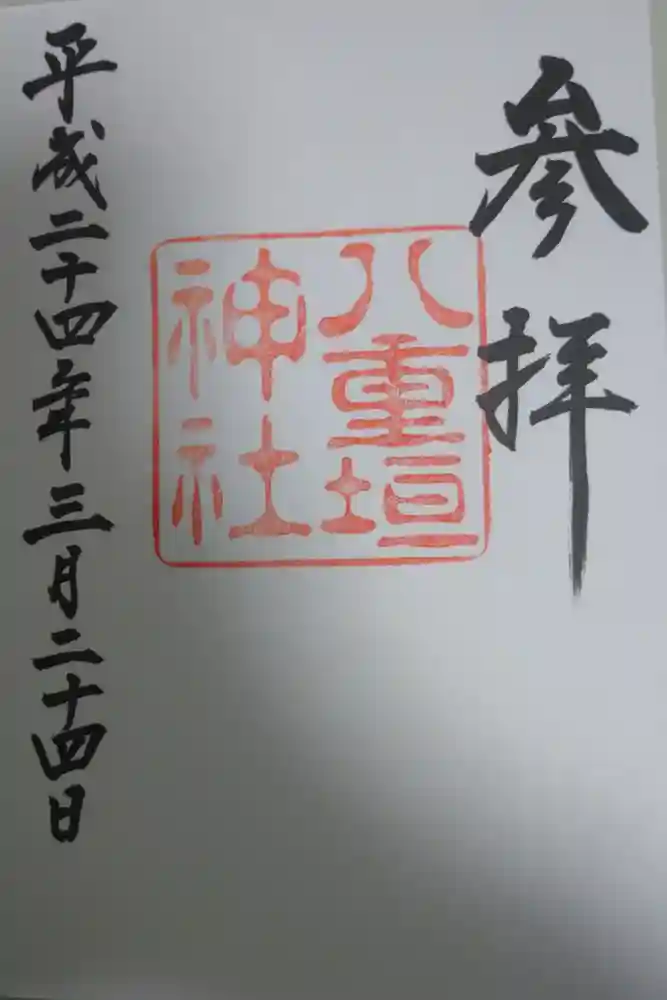 参拝
八重垣
神社
平成二十四年三月二十四日